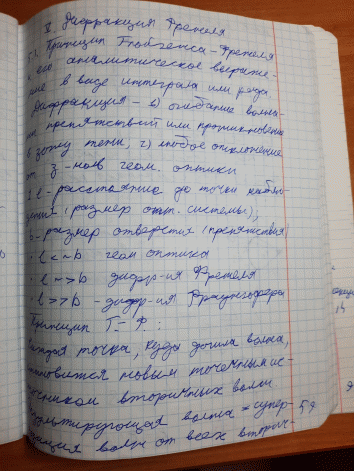 V. Дифракция Френеля
5.1. Принцип Гюйгенса-Френеля
и его аналитическое выраже-
ние в виде интеграла или ряда.
Дифракция – в) огибание волна-
ми препятствий или проникновение
в зону тени, г) любое отклонение
от з-нов геом. оптики
l - расстояние до точки наблю-
дения (размер опт. системы),
b - размер отверстия (препятствия)
· l < ~ b геом оптика
· l ~ > b дифр-ия Френеля
· l >> b - дифр-ия Фраунгофера
Принцип Г-Ф.:
каждая точка, куда дошла волна,
становится новым точечным ис-
точником вторичных волн
результирующая волна = супер-
позиция волн от всех вторич-
59